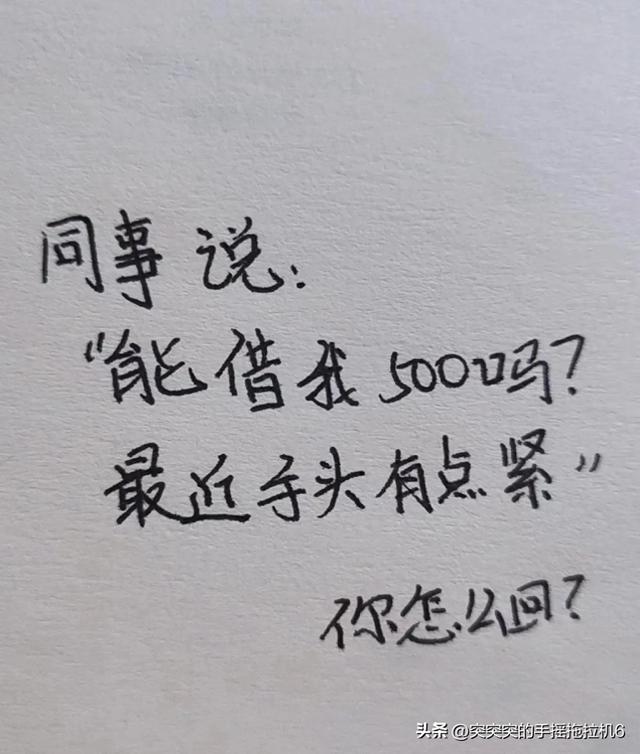 同事说:
“能借我500吗?
最近手头有点紧”
你怎么回?
头条 @突突突的手摇拖拉机6